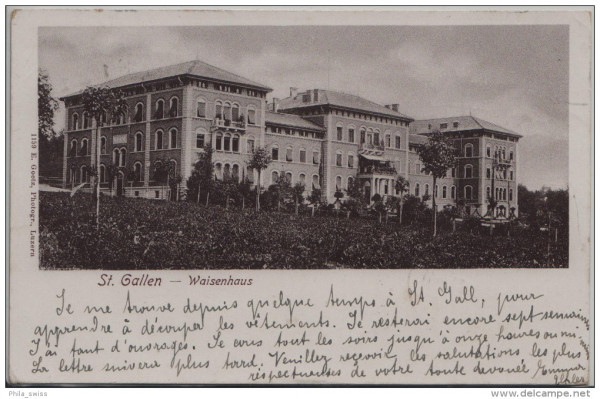 1159 E. Goetz, Photogr., Luzern
St. Gallen — Waisenhaus
Je me trouve depuis quelque temps à St. Gall, pour
apprendre à découper les vêtements. Je resterai encore sept semaines
J'ai tant d'ouvrages. Je cous tout les soirs jusqu'à onze heures ou mi
La lettre suivera plus tard. Veuillez recevoir les salutations les plus
respectueuses de votre toute devouée Emma
Phila_swiss
www.delcampe.net